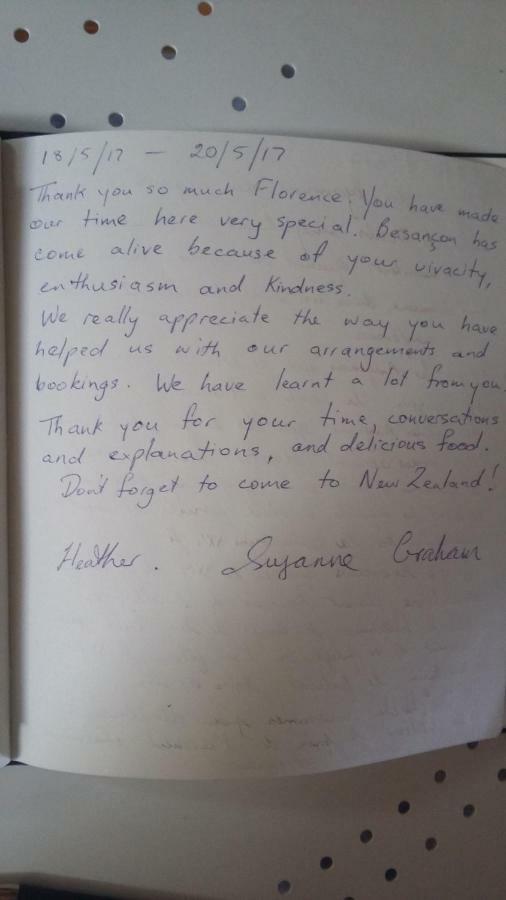 18/5/17 - 20/5/17
Thank you so much Florence. You have made
our time here very special. Besançon has
come alive because of your vivacity,
enthusiasm and kindness.
We really appreciate the way you have
helped us with our arrangements and
bookings. We have learnt a lot from you.
Thank you for your time, conversations
and explanations, and delicious food.
Don't forget to come to New Zealand!
Heather. Suzanne Graham